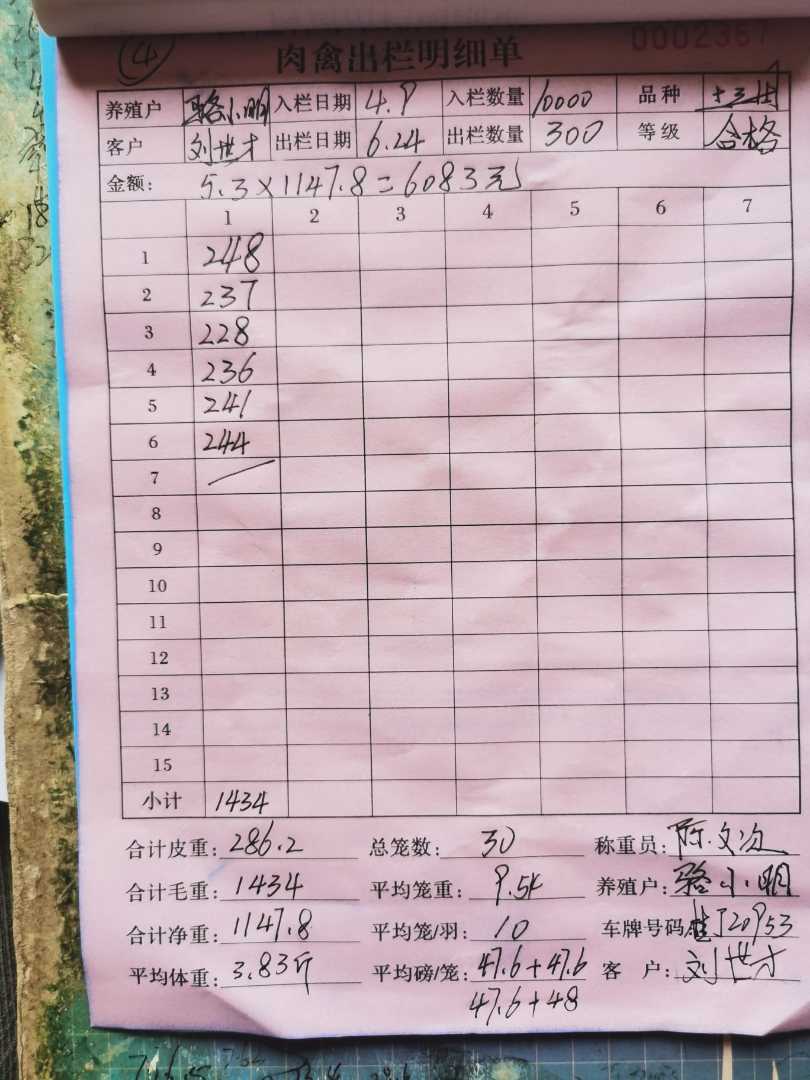 ④
肉禽出栏明细单 0002367
养殖户 骆小明 入栏日期 4.9 入栏数量 10000 品种
客户 刘世才 出栏日期 6.24 出栏数量 300 等级 合格
金额: 5.3×1147.8=6083元
1 2 3 4 5 6 7
1 248
2 237
3 228
4 236
5 241
6 244
7
8
9
10
11
12
13
14
15
小计 1434
合计皮重: 286.2 总笼数: 30 称重员: 陈文
合计毛重: 1434 平均笼重: 9.54 养殖户: 骆小明
合计净重: 1147.8 平均笼/羽: 10 车牌号码: 20953
平均体重: 3.83斤 平均磅/笼: 47.6+47.6 客户: 刘世才
47.6+48